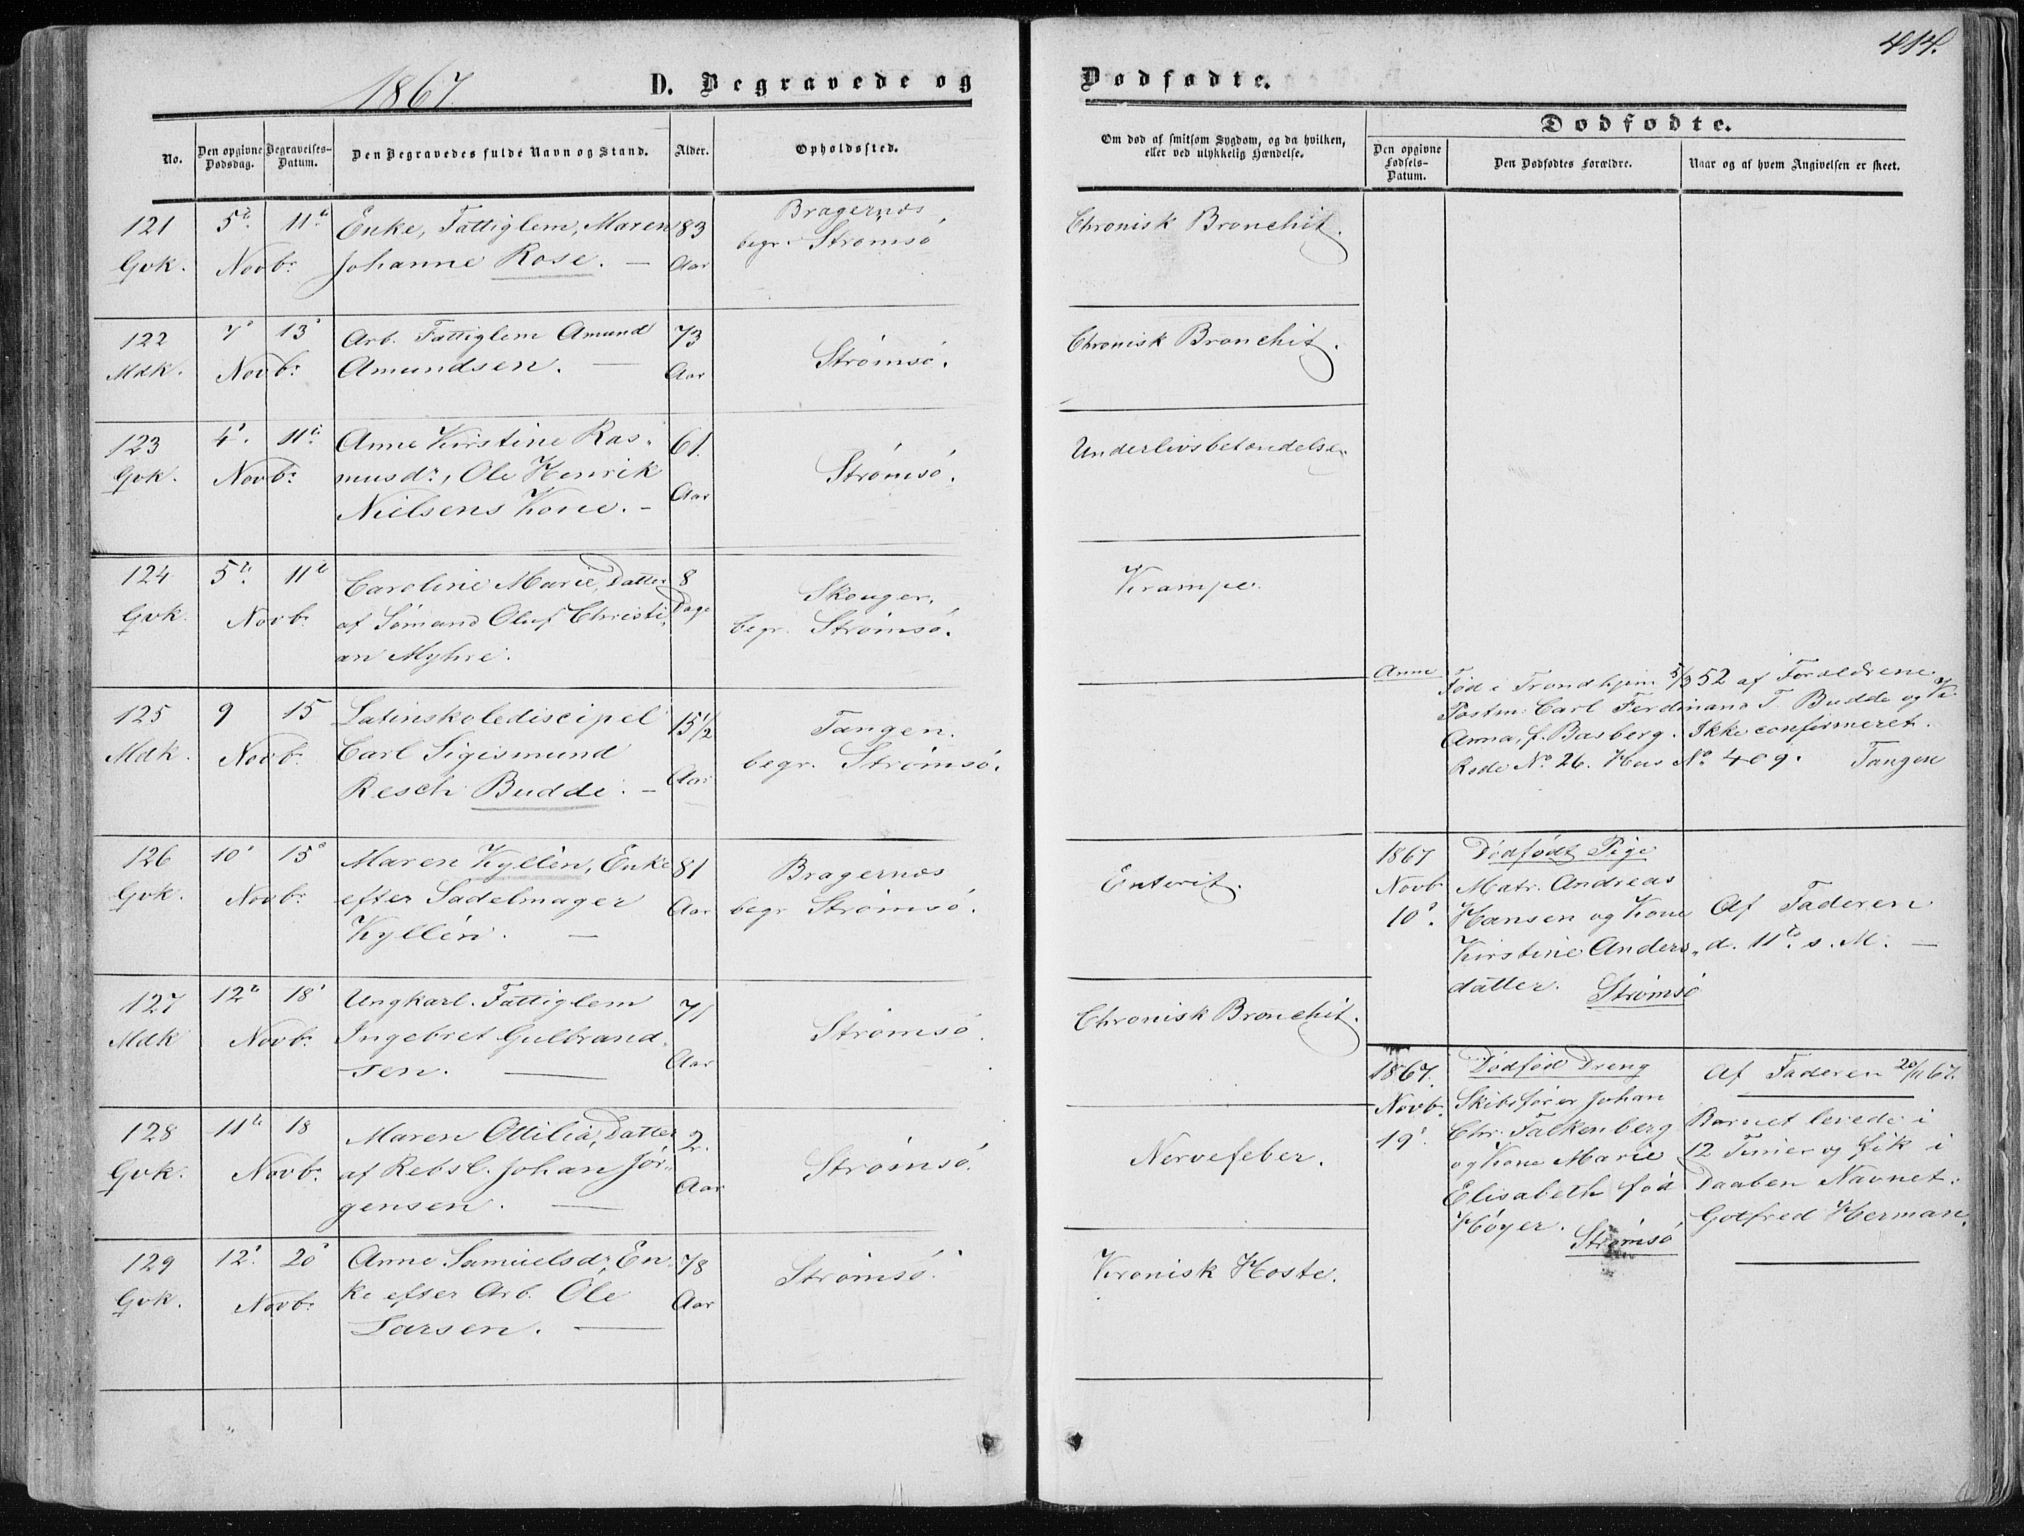 414.
1867
D. Begravede og
Dødfødte.
No.
Den opgivne Dødsdag.
Begravelses-Datum.
Den Begravedes fulde Navn og Stand.
Alder.
Opholdssted.
Om død af smitsom Sygdom, og da hvilken, eller ved ulykkelig Hændelse.
Dødfødte.
Den opgivne Fødsels-Datum.
Den Dødfødtes Forældre.
Naar og af hvem Angivelsen er skeet.
121 5te 11te Enke, Fattiglem, Maren 83 Bragernæs Chronisk Bronchit.
Gvk. Novbr. Johanne Rose. — Aar begr. Strømsø
122 7de 13de Arb. Fattiglem Amund 73 Strømsø. Chronisk Bronchit.
Mdk. Novbr. Amundsen. — Aar
123 4de 11te Anne Kirstine Ras- 61. Strømsø. Underlivsbetændelse.
Gvk. Novbr. musdr., Ole Henrik Aar
Nielsens Kone. -
124 5te 11te Caroline Marie, Datter 8 Skouger, Krampe.
Gvk. Novbr. af Sømand Oluf Christi- Dage begr. Strømsø.
an Myhre.
125 9 15 Latinskolediscipel 15 1/2 Tangen.
Mdk. Novbr. Carl Sigismund Aar begr. Strømsø.
Resch Budde. —
Anm Fød i Trondhjem 5/3 52 af Forældrene
Postm. Carl Ferdinand T. Budde og
Anna, f. Basberg. Ikke confirmeret.
Rode No. 26. Hus No. 409. Tangen
126 10de 15de Maren Kyllén, Enke 81 Bragernæs Enterit.
Gvk. Novbr. efter Sadelmager Aar begr. Strømsø.
Kyllén. —
1867 Dødfødt Pige
Novb Matr. Andreas
10de Hansen og Kone Af Faderen
Kirstine Anders- d. 11te s. M. —
datter. Strømsø
127 12te 18de Ungkarl. Fattiglem 71 Strømsø. Chronisk Bronchit.
Mdk Novbr. Ingebret Gulbrand- Aar
sen. —
1867. Dødfød Dreng Af Faderen 20/11 67.
Novb. Skibsfører Johan Barnet levede i
19de Chr. Falkenberg 12 Timer og fik i
og Kone Marie Daaben Navnet:
Elisabeth fød Gotfred Herman.
Høyer. Strømsø
128 11te 18 Maren Ottilia, Datter 2. Strømsø. Nervefeber.
Gvk. Novbr. af Rebsl. Johan Jør- Aar
gensen. —
129 12te 20de Anne Samuelsdr., En- 78 Strømsø. Kronisk Hoste.
Gvk. Novbr. ke efter Arb. Ole Aar
Larsen. —